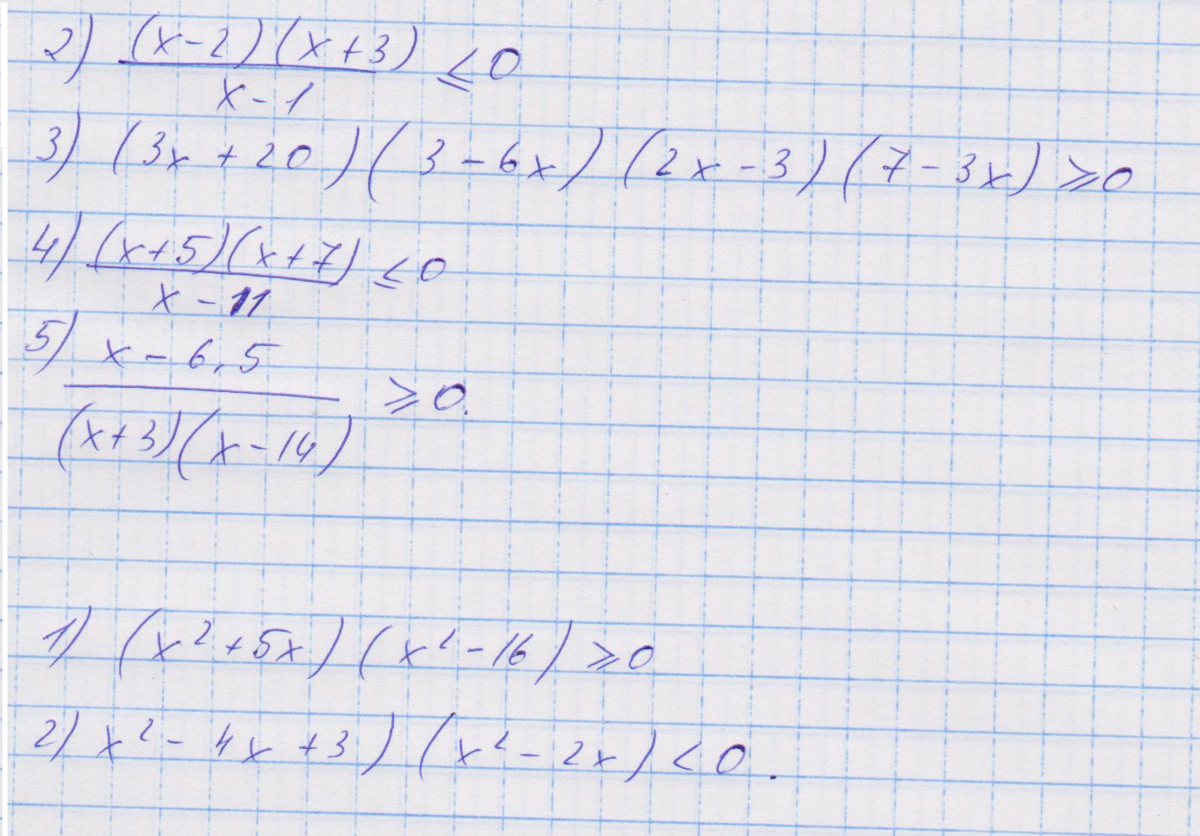 2) (x-2)(x+3)
x-1 ≤0
3) (3x+20)(3-6x)(2x-3)(7-3x)≥0
4) (x+5)(x+7)
x-11 ≤0
5) x-6,5
(x+3)(x-14) ≥0.
1) (x²+5x)(x²-16)≥0
2) x²-4x+3)(x²-2x)<0.